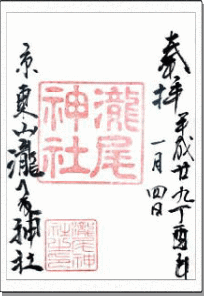 奉拝
平成廿九丁酉年
一月四日
瀧尾
神社
京東山瀧尾神社
瀧尾神
社之印